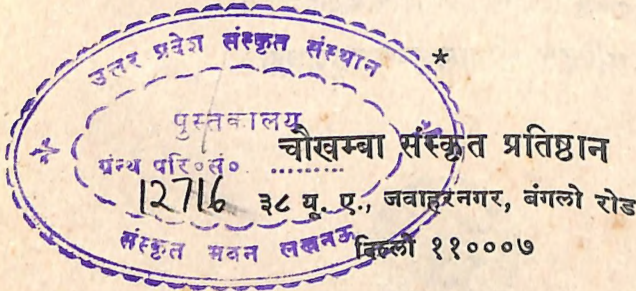 उत्तर प्रदेश संस्कृत संस्थान
*
पुस्तकालय
ग्रंन्थ परि०सं० .........
12716
संस्कृत भवन लखनऊ
चौखम्बा संस्कृत प्रतिष्ठान
३८ यू. ए., जवाहरनगर, बंगलो रोड
दिल्ली ११०००७